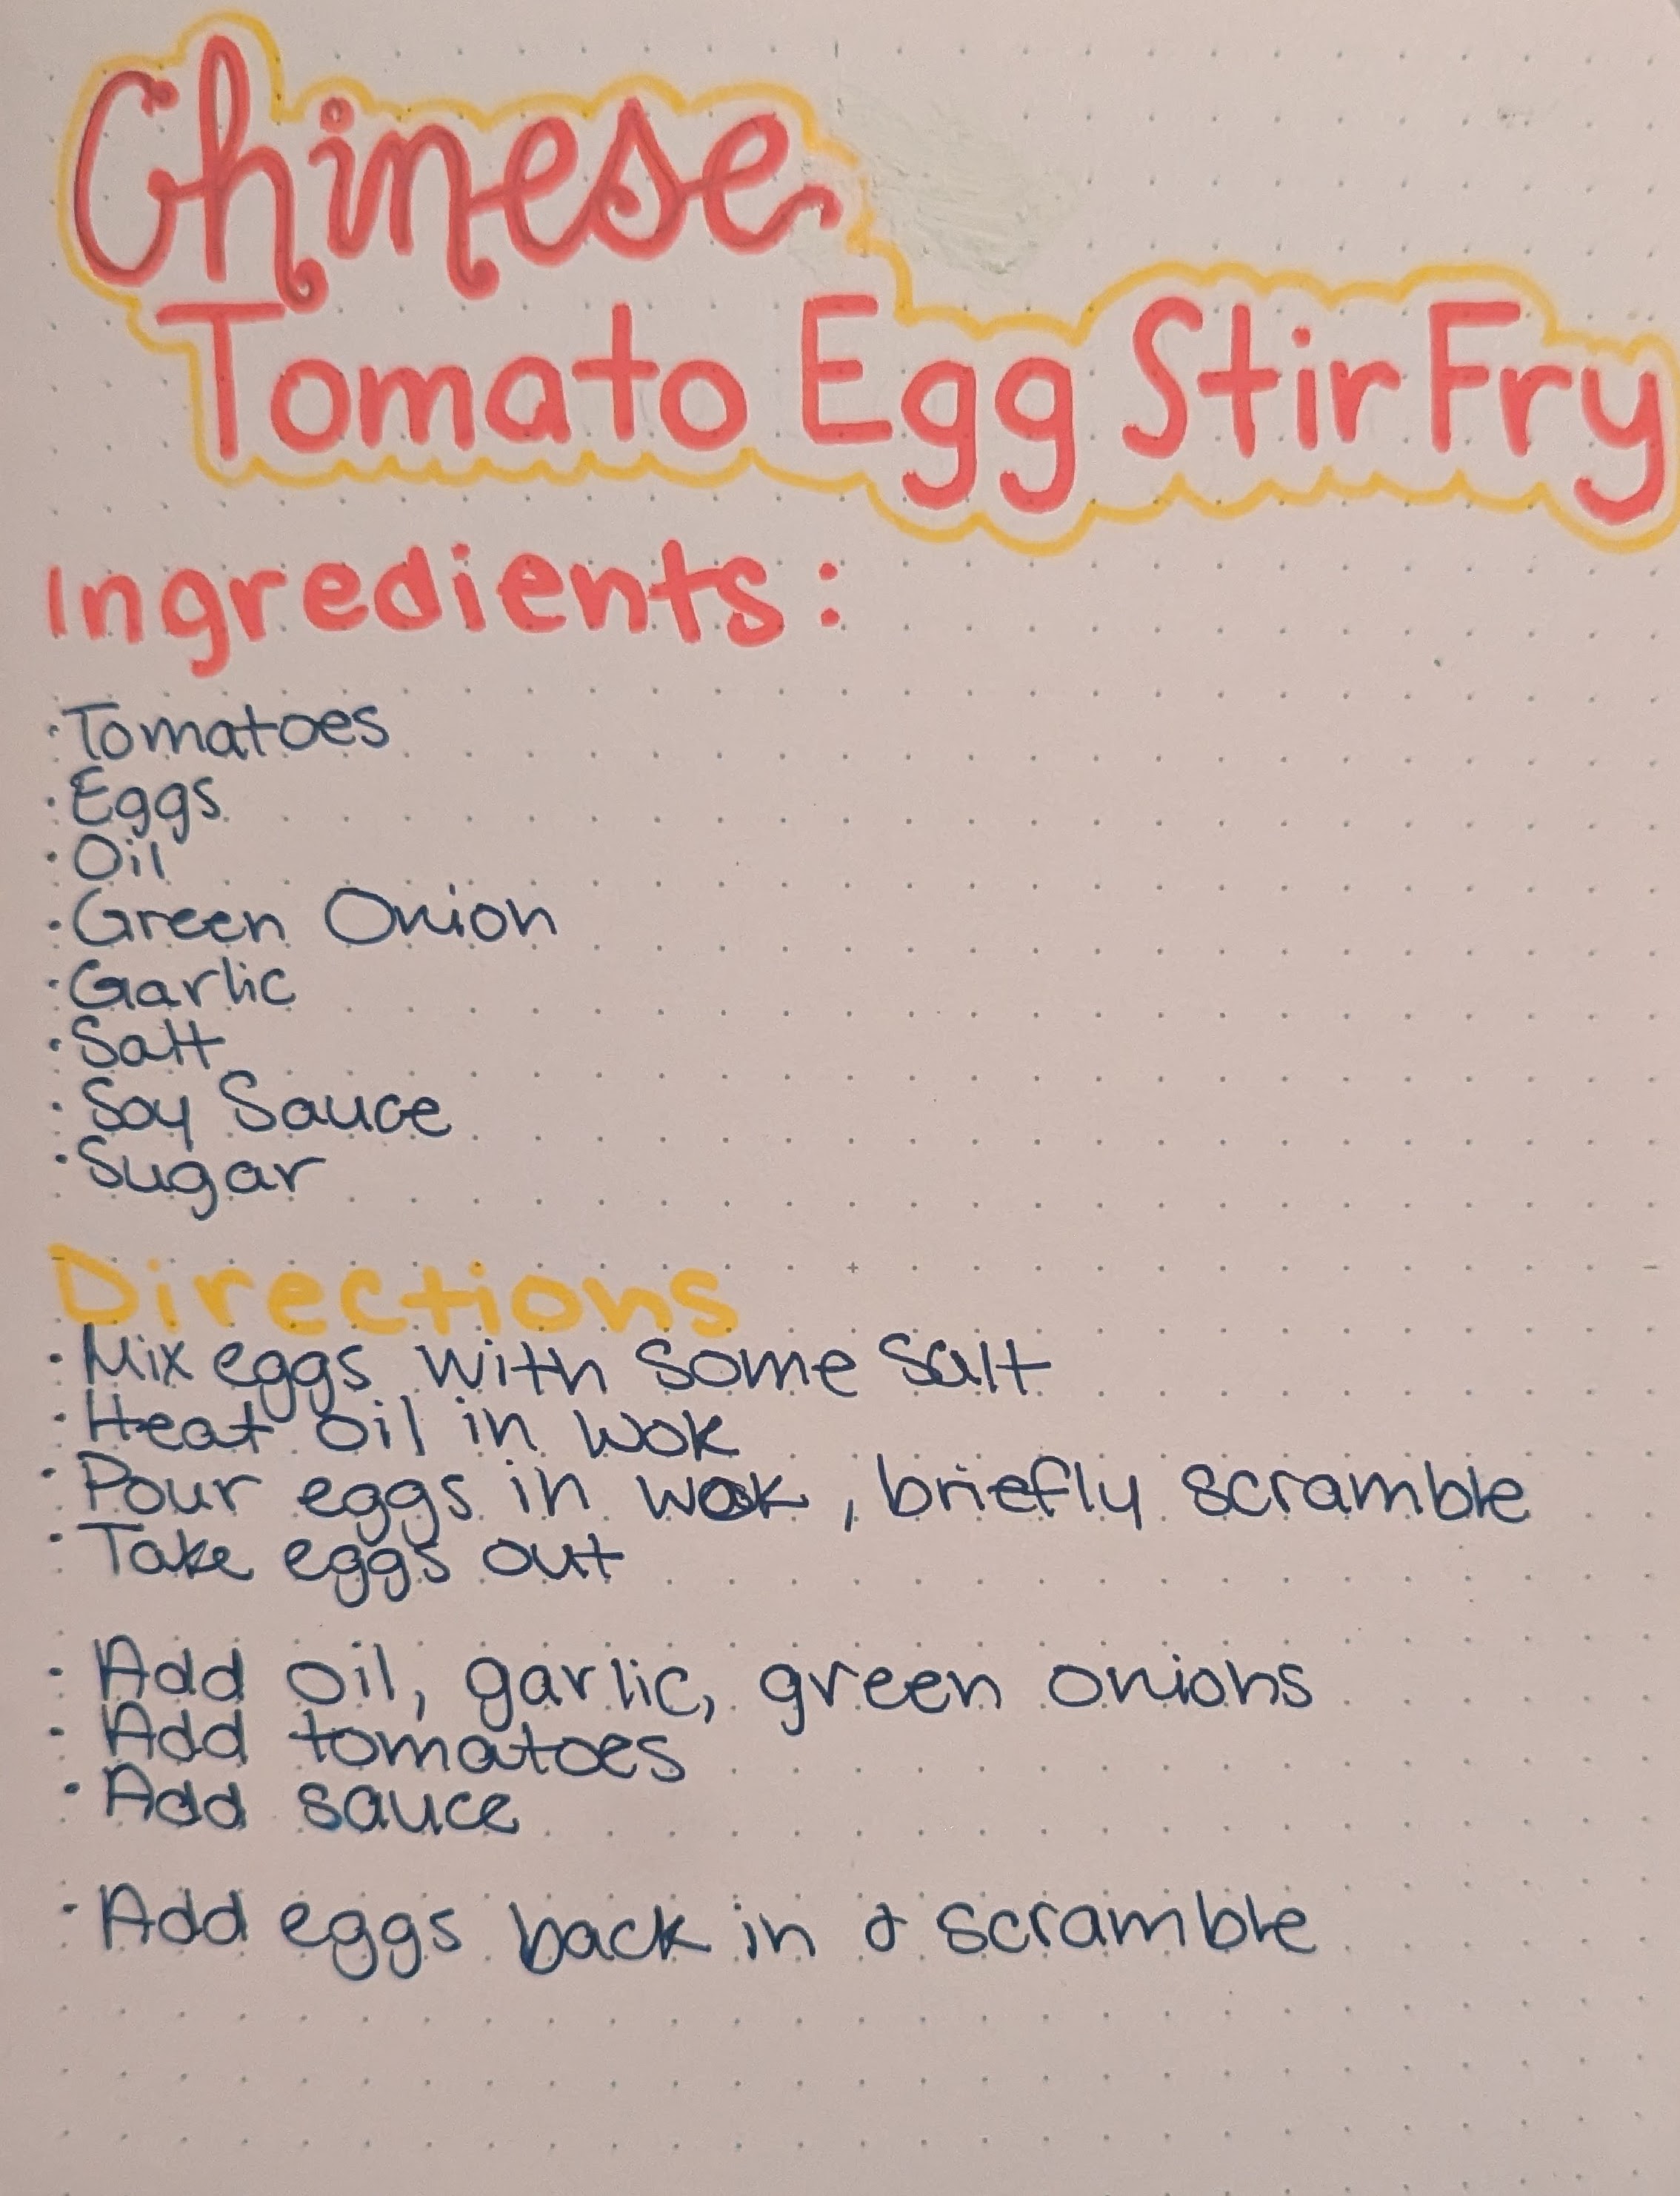 Chinese
Tomato Egg Stir Fry
Ingredients:
· Tomatoes
· Eggs
· Oil
· Green Onion
· Garlic
· Salt
· Soy Sauce
· Sugar
Directions
· Mix eggs with some salt
· Heat oil in wok
· Pour eggs in wok, briefly scramble
· Take eggs out
· Add oil, garlic, green onions
· Add tomatoes
· Add sauce
· Add eggs back in & scramble